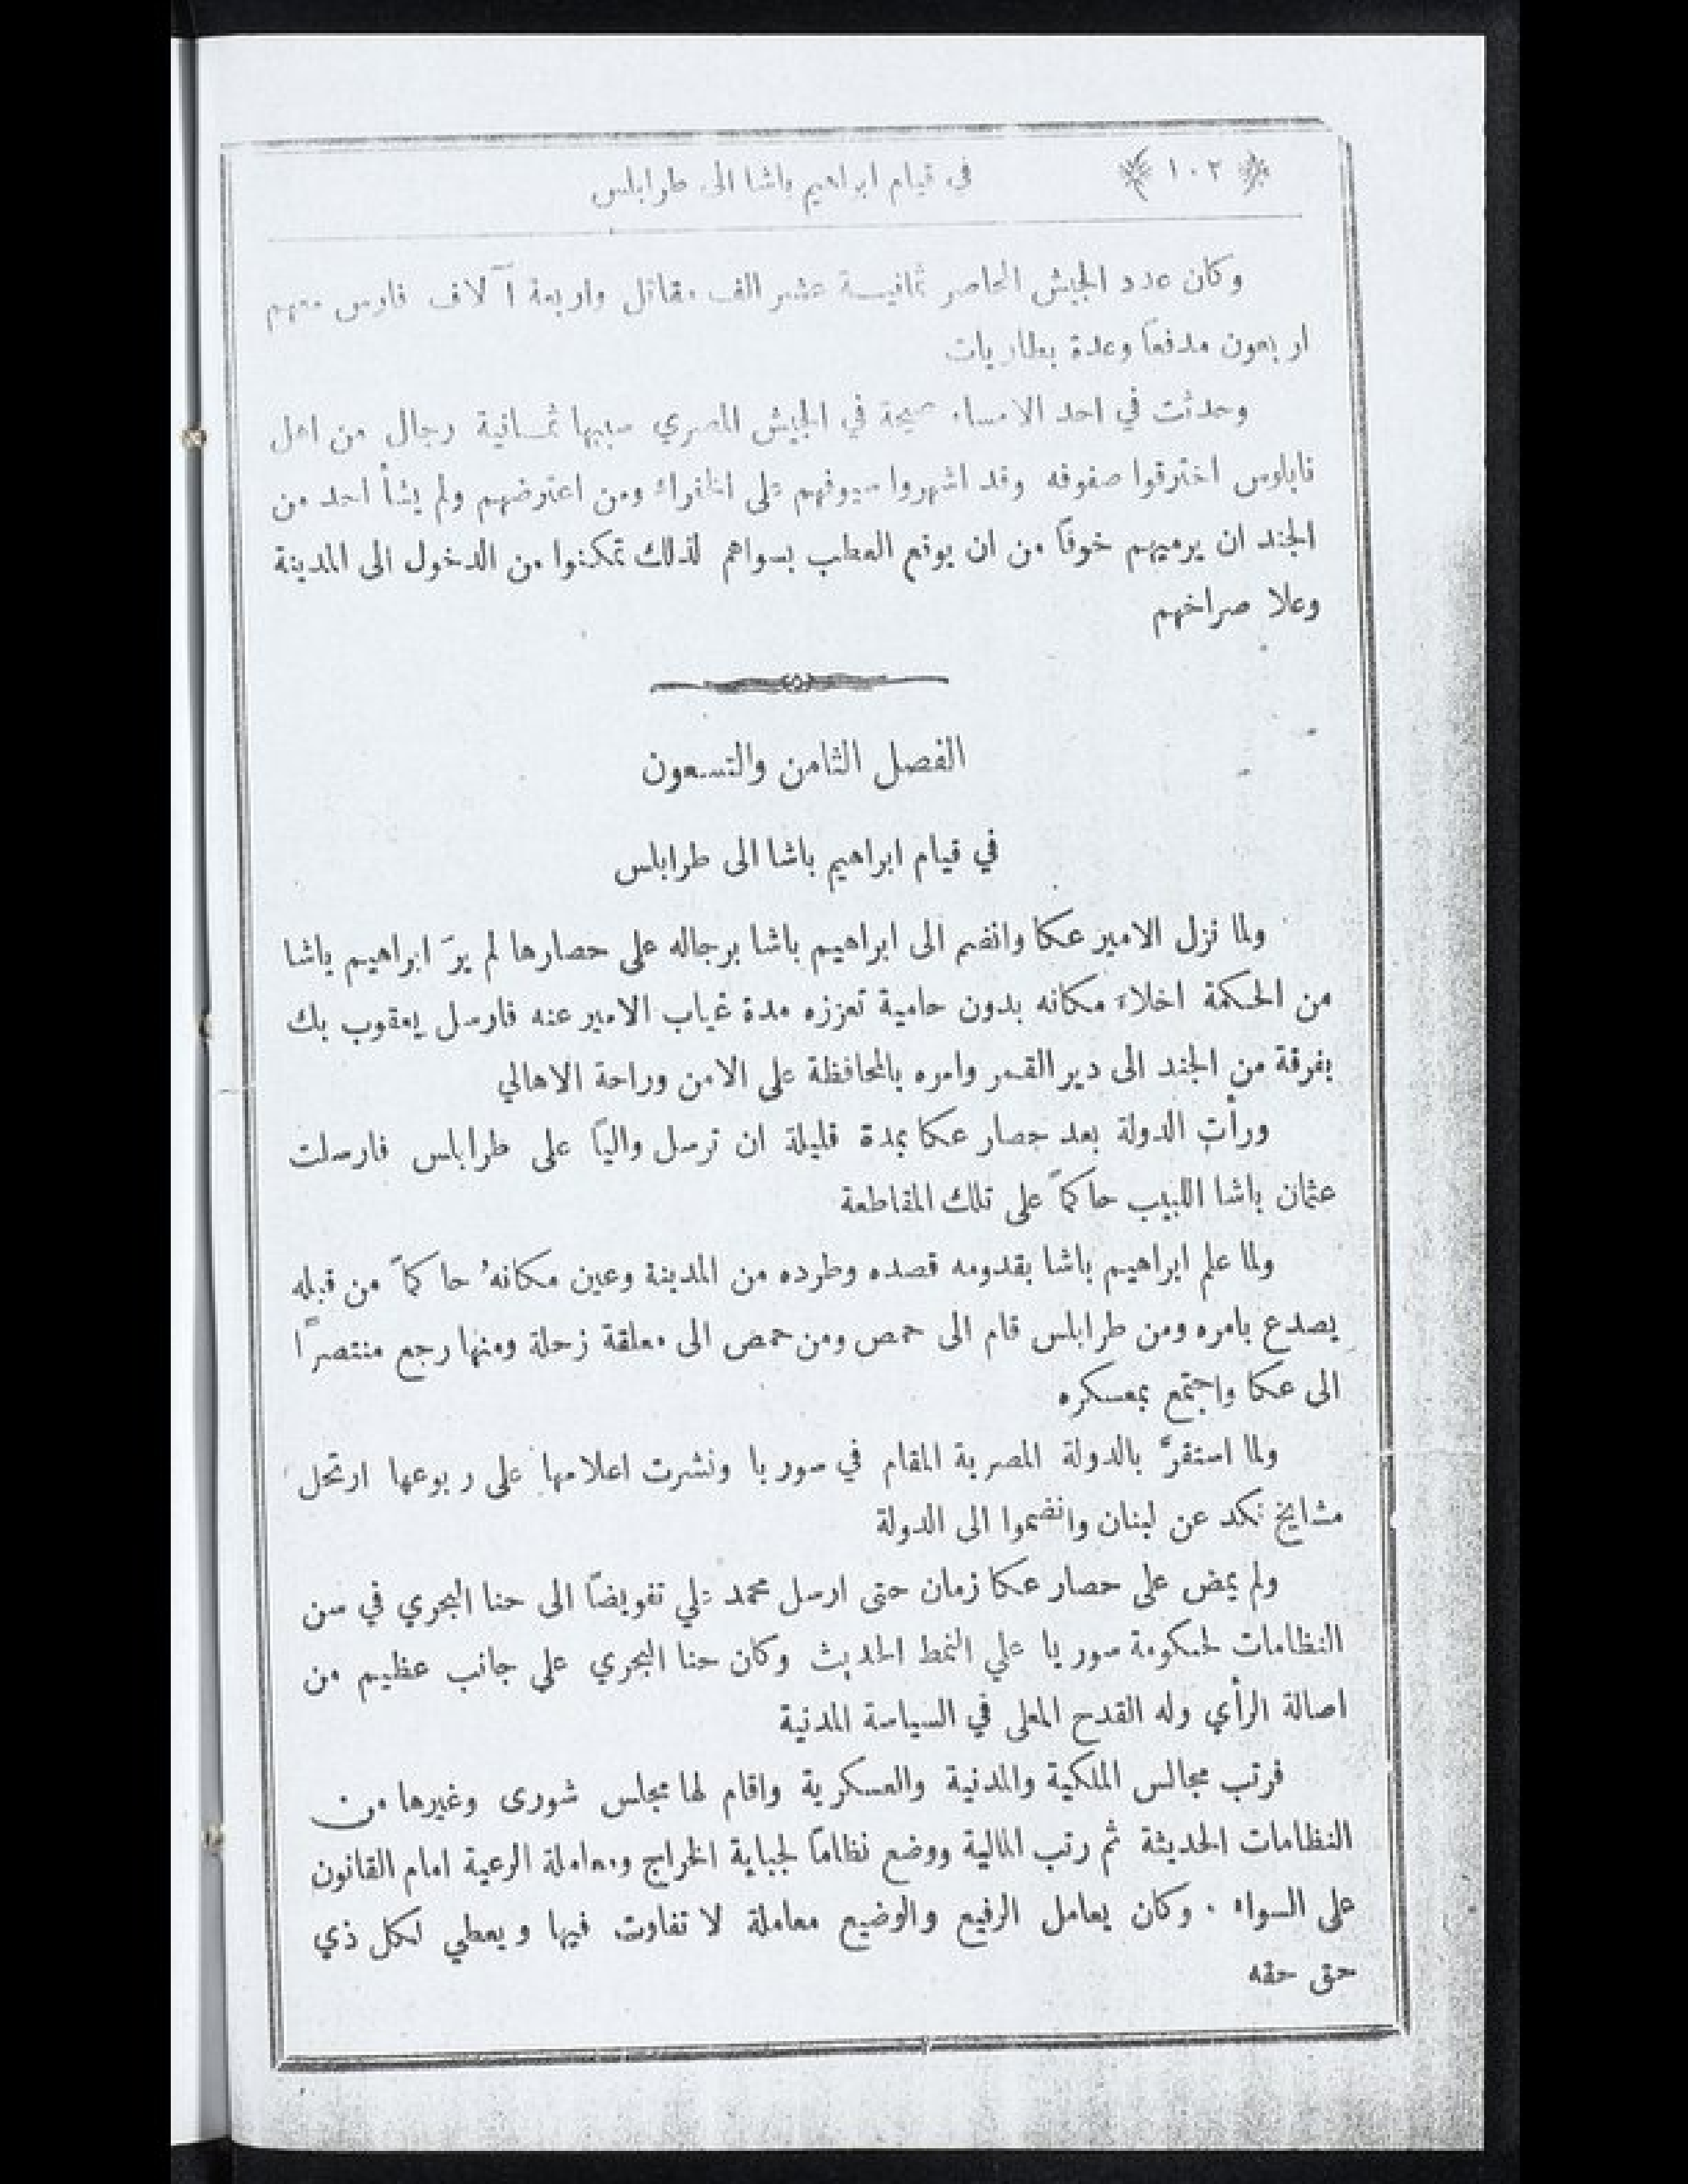 ﴿ ١٠٢ ﴾ في قيام ابراهيم باشا الى طرابلس
وكان عدد الجيش الحاصر ثمانيـة عشر الف مقاتل واربعة آلاف فارس معهم
اربعون مدفعاً وعدة بطاريات
وحدثت في احد الامساء صيحة في الجيش المصري سببها ثمـانية رجال من اهل
نابلوس اخترقوا صفوفه وقد اشهروا سيوفهم على الخفراء ومن اعترضهم ولم يشأ احد من
الجند ان يرميهم خوفاً من ان يوقع العطب بسواهم لذلك تمكنوا من الدخول الى المدينة
وعلا صراخهم
الفصل الثامن والتسعون
في قيام ابراهيم باشا الى طرابلس
ولما نزل الامير عكا وانضم الى ابراهيم باشا برجاله على حصارها لم يرَ ابراهيم باشا
من الحكمة اخلاء مكانه بدون حامية تعززه مدة غياب الامير عنه فارسل يعقوب بك
بفرقة من الجند الى دير القمر وامره بالمحافظة على الامن وراحة الاهالي
ورأت الدولة بعد حصار عكا بمدة قليلة ان ترسل والياً على طرابلس فارسلت
عثمان باشا اللبيب حاكماً على تلك المقاطعة
ولما علم ابراهيم باشا بقدومه قصده وطرده من المدينة وعين مكانهُ حاكماً من قبله
يصدع بامره ومن طرابلس قام الى حمص ومن حمص الى معلقة زحلة ومنها رجع منتصراً
الى عكا واجتمع بمعسكره
ولما استقرَّ بالدولة المصرية المقام في سوريا ونشرت اعلامها على ربوعها ارتحل
مشايخ نكد عن لبنان وانضموا الى الدولة
ولم يمض على حصار عكا زمان حتى ارسل محمد علي تفويضاً الى حنا البحري في سن
النظامات لحكومة سوريا علي النمط الحديث وكان حنا البحري على جانب عظيم من
اصالة الرأي وله القدح المعلى في السياسة المدنية
فرتب مجالس الملكية والمدنية والعسكرية واقام لها مجلس شورى وغيرها من
النظامات الحديثة ثم رتب المالية ووضع نظاماً لجباية الخراج ومعاملة الرعية امام القانون
على السواء . وكان يعامل الرفيع والوضيع معاملة لا تفاوت فيها ويعطي لكل ذي
حق حقه